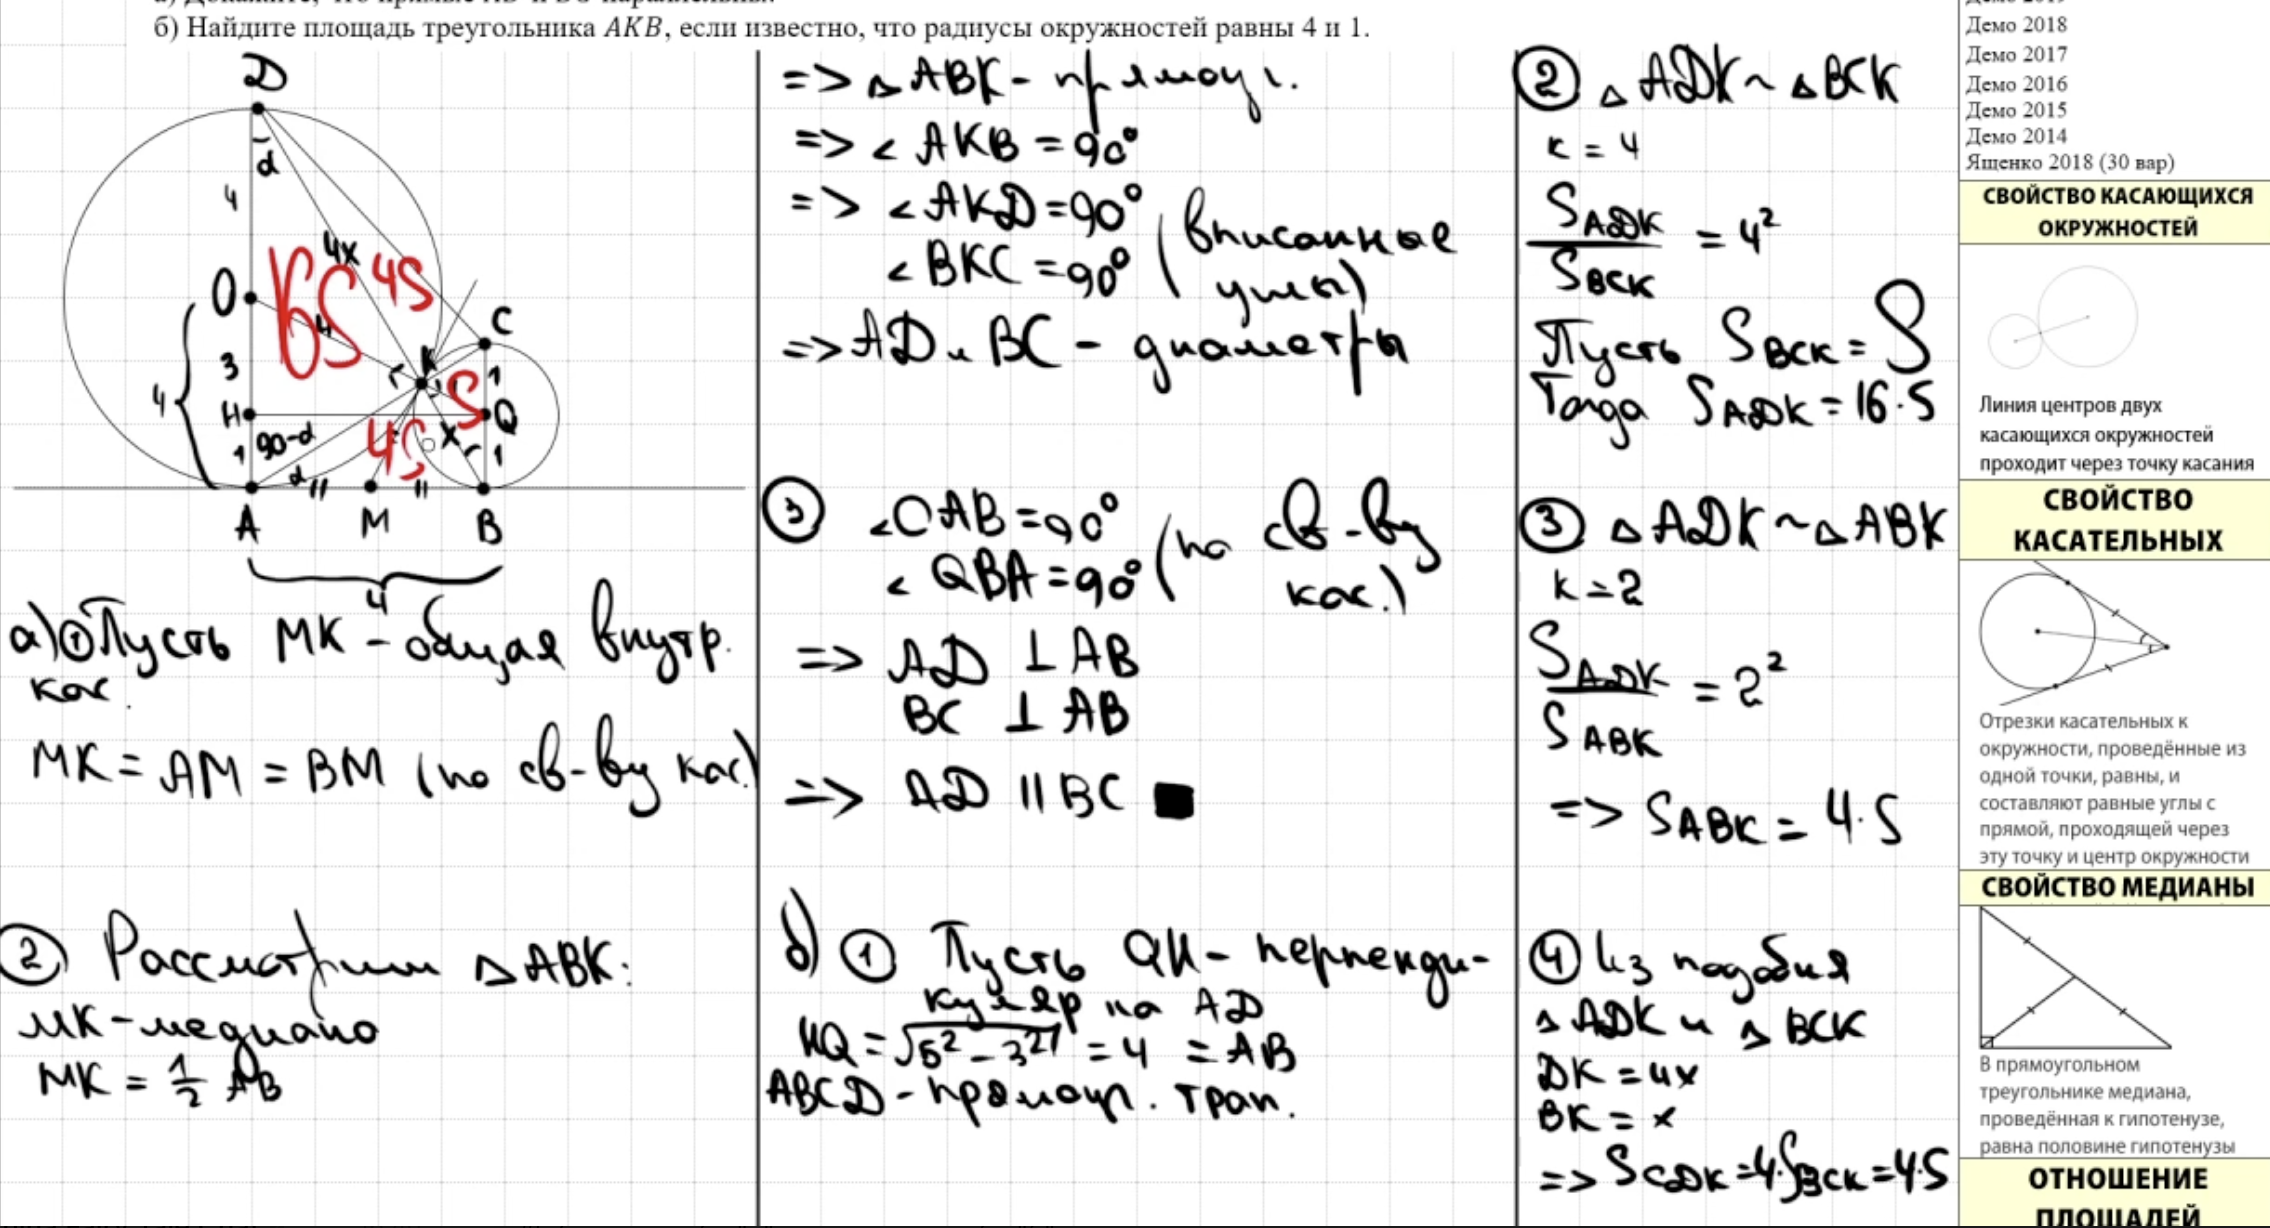 б) Найдите площадь треугольника AKB, если известно, что радиусы окружностей равны 4 и 1.
D
α
4
4x
16S
4S
O
4
C
K
3
4
1
S
H
Q
90-α
4S
x
1
1
α
A
M
B
4
а) ① Пусть MK - общая внутр.
кас.
MK = AM = BM (по св-ву кас.)
② Рассмотрим △ABK:
MK - медиана
MK = 1/2 AB
=> △ABK - прямоуг.
=> ∠AKB = 90°
=> ∠AKD = 90°
∠BKC = 90° (вписанные углы)
=> AD и BC - диаметры
③ ∠OAB = 90°
∠QBA = 90° (по св-ву кас.)
=> AD ⊥ AB
BC ⊥ AB
=> AD || BC ■
б) ① Пусть QH - перпенди-
куляр на AD
HQ = √5² - 3² = 4 = AB
ABCD - прямоуг. трап.
② △ADK ~ △BCK
k = 4
S ADK / S BCK = 4²
Пусть S BCK = S
Тогда S ADK = 16·S
③ △ADK ~ △ABK
k = 2
S ADK / S ABK = 2²
=> S ABK = 4·S
④ Из подобия
△ADK и △BCK
DK = 4x
BK = x
=> S CDK = 4·S BCK = 4·S
Демо 2018
Демо 2017
Демо 2016
Демо 2015
Демо 2014
Ященко 2018 (30 вар)
СВОЙСТВО КАСАЮЩИХСЯ
ОКРУЖНОСТЕЙ
Линия центров двух
касающихся окружностей
проходит через точку касания
СВОЙСТВО
КАСАТЕЛЬНЫХ
Отрезки касательных к
окружности, проведённые из
одной точки, равны, и
составляют равные углы с
прямой, проходящей через
эту точку и центр окружности
СВОЙСТВО МЕДИАНЫ
В прямоугольном
треугольнике медиана,
проведённая к гипотенузе,
равна половине гипотенузы
ОТНОШЕНИЕ
ПЛОЩАДЕЙ